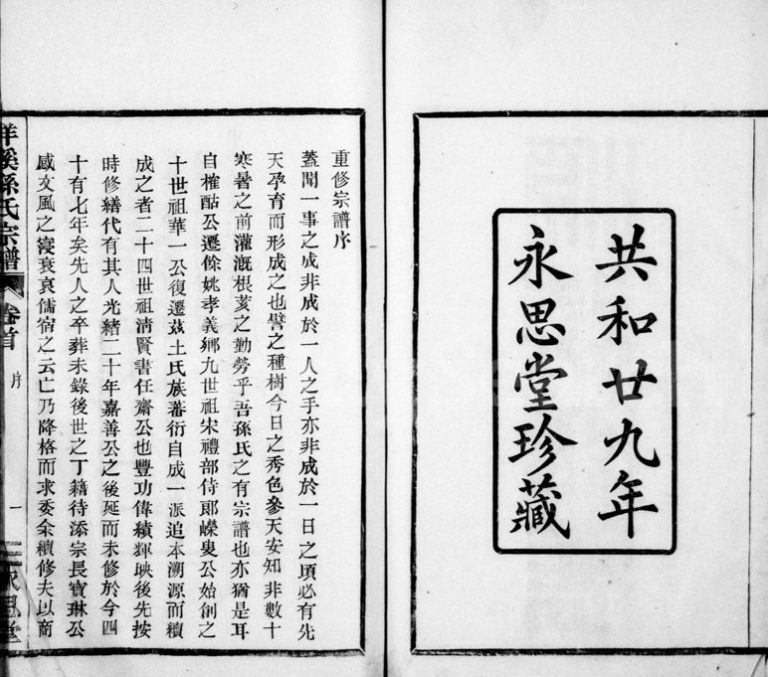 共和廿九年
永思堂珍藏
重修宗譜序
蓋聞一事之成非成於一人之手亦非成於一日之頃必有先
天孕育而形成之也譬之種樹今日之秀色參天安知非數十
寒暑之前灌漑根荄之勤勞乎吾孫氏之有宗譜也亦猶是耳
自榷酤公遷餘姚孝義鄉九世祖宋禮部侍郎嶸叟公始創之
十世祖華一公復遷茲土氏族蕃衍自成一派追本溯源而續
成之者二十四世祖淸賢書任齋公也豐功偉績輝映後先按
時修繕代有其人光緒二十年嘉善公之後延而未修於今四
十有七年矣先人之卒葬未錄後世之丁籍待添宗長寶琳公
感文風之寖衰哀儒宿之云亡乃降格而求委余續修夫以商
孫氏宗譜
卷首
序
一
永思堂